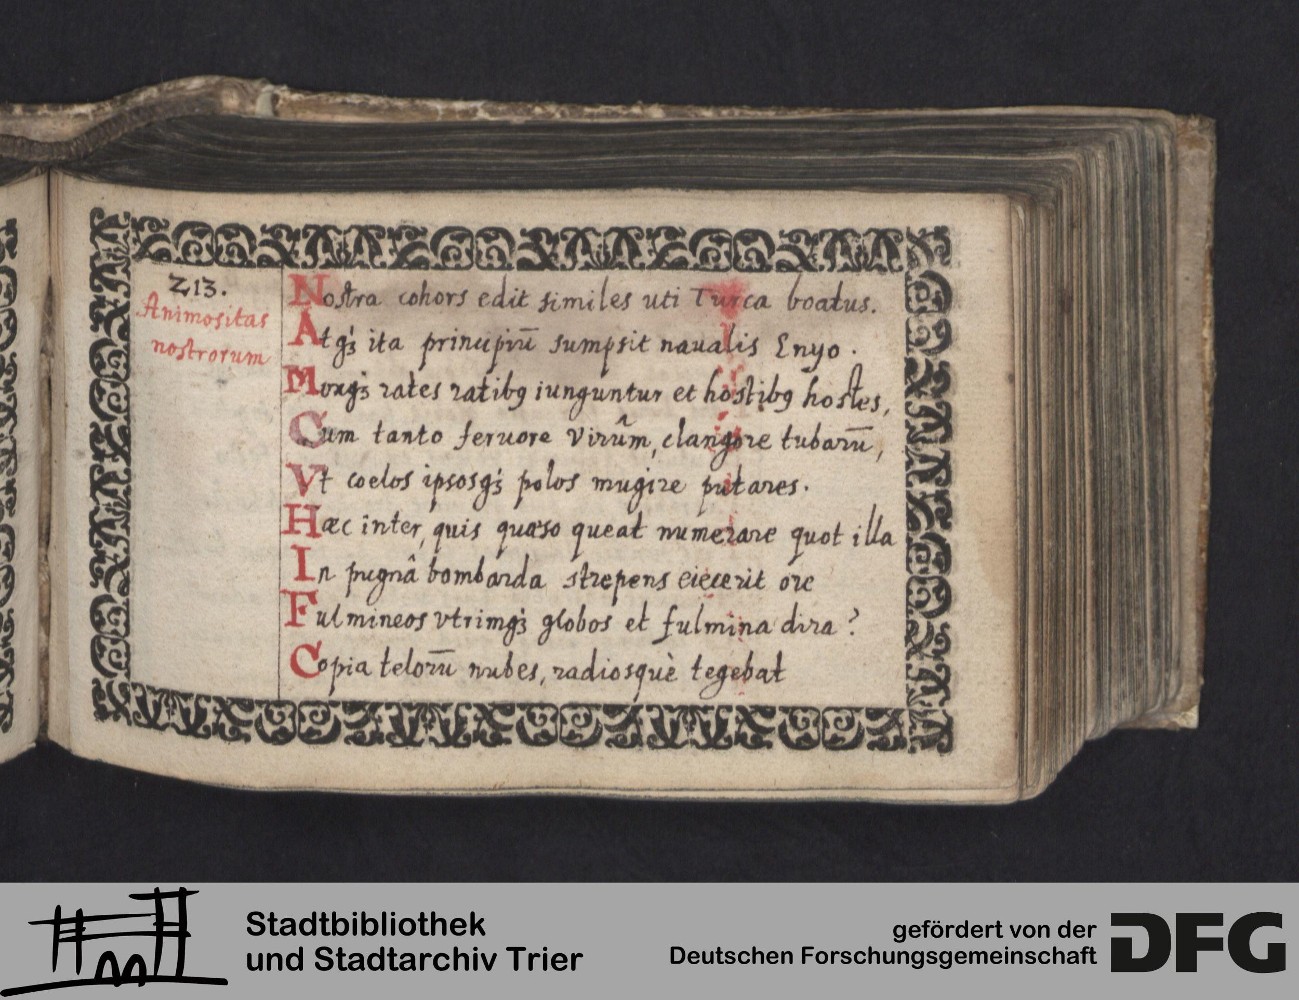 213.
Animositas
nostrorum
Nostra cohors edit similes uti Turca boatus.
Atqꝫ ita principiū sumpsit naualis Enyo.
Moxqꝫ rates ratibꝯ iunguntur et hostibꝯ hostes,
Cum tanto feruore virûm, clangore tubarū,
Vt coelos ipsosqꝫ polos mugire putares.
Hæc inter, quis quæso queat numerare quot illa
In pugnâ bombarda strepens eiecerit ore
Fulmineos vtrimqꝫ globos et fulmina dira?
Copia telorū nubes, radiosquè tegebat
Stadtbibliothek
und Stadtarchiv Trier
gefördert von der
Deutschen Forschungsgemeinschaft
DFG